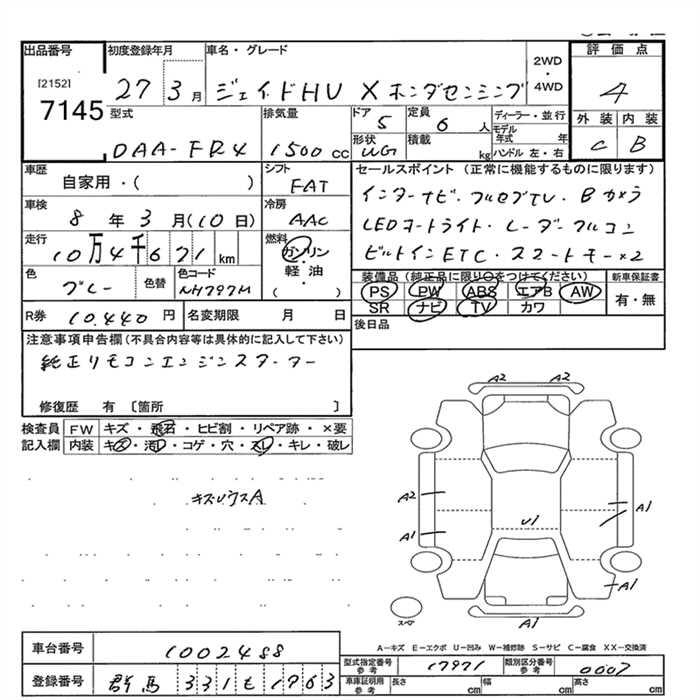 出品番号 初度登録年月 車名・グレード 評価点
[2152] 7145 27 3月 ジェイドHV X ホンダセンシング 2WD・4WD 4
型式 排気量 ドア 5 定員 6人 ディーラー・並行 外装 内装
DAA-FR4 1500cc 形状 WG 積載 kg モデル年式 年 ハンドル 左・右 C B
車歴 シフト セールスポイント(正常に機能するものに限ります)
自家用・( ) FAT インターナビ・フルセグTV・Bカメラ
車検 冷房
8年3月(10日) AAC LEDオートライト・レーダークルコン
走行 燃料
10万4千671km ガソリン・軽油・( ) ビルトインETC・スマートキー×2
色 色替 色コード 装備品(純正品に限り○をつけてください) 新車保証書
グレー NH797M PS PW ABS エアB AW 有・無
SR ナビ TV カワ
R券 10.440円 名変期限 月 日 後日品
注意事項申告欄(不具合内容等は具体的に記入して下さい)
純正リモコンエンジンスターター
修復歴 有〔箇所 〕
検査員 FW キズ・飛石・ヒビ割・リペア跡・×要
記入欄 内装 キズ・汚レ・コゲ・穴・スレ・キレ・破レ
キズ小ウスA
A2 A2
A2 A1
A1 U1
A1
A1
スペア
A-キズ E-エクボ U-凹み W-補修跡 S-サビ C-腐食 XX-交換済
車台番号 1002488 型式指定番号 参考 17971 類別区分番号 参考 0007
登録番号 群馬 331 も 1763 車庫証明用 参考 長さ cm 幅 cm 高さ cm